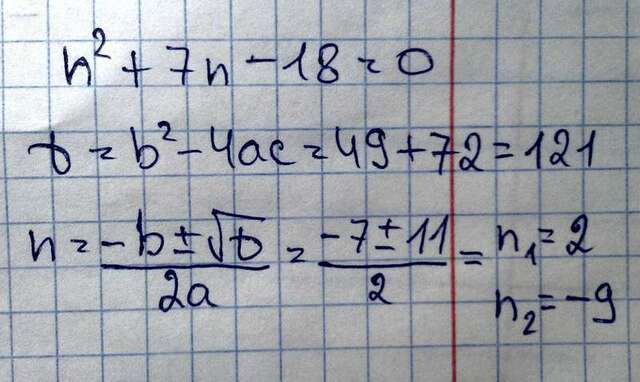 n² + 7n - 18 = 0
D = b² - 4ac = 49 + 72 = 121
n = (-b ± √D)/(2a) = (-7 ± 11)/2 = n₁ = 2
n₂ = -9